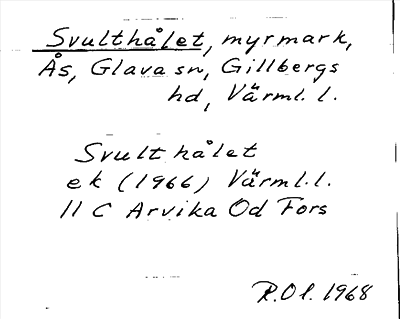 Svulthålet, myrmark,
Ås, Glava sn, Gillbergs
hd, Värml. l.
Svulthålet
ek (1966) Värml. l.
11 C Arvika Od Fors
R.Ol. 1968